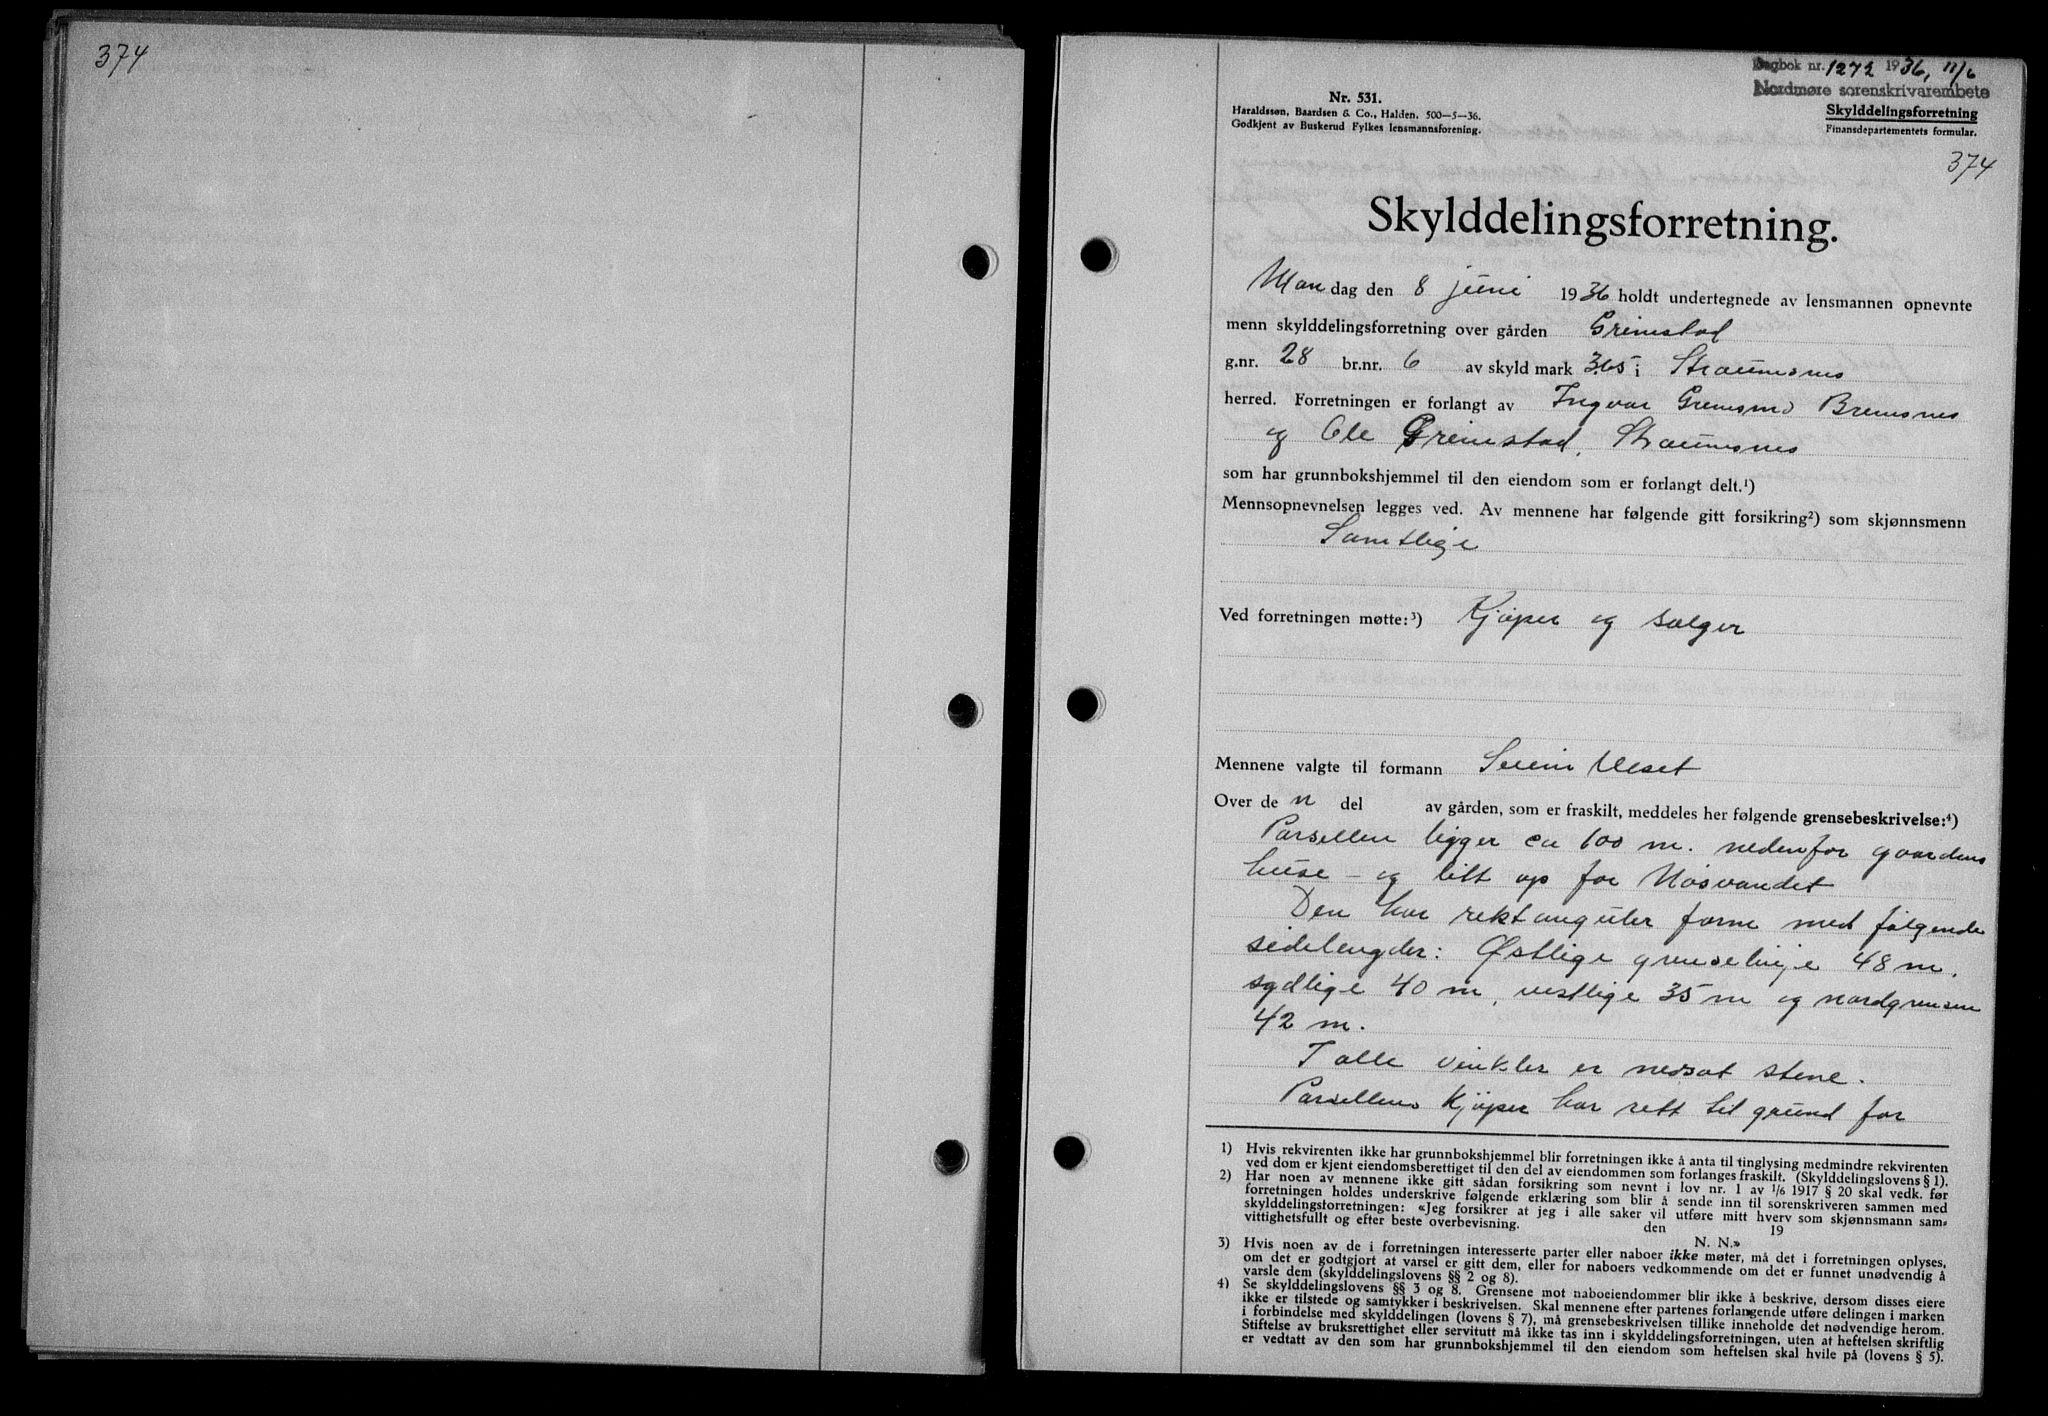 374
Dagbok nr. 1272 1936, 11/6
Nordmøre sorenskrivarembete
Nr. 531.
Haraldssøn, Baardsen & Co., Halden. 500—5—36.
Godkjent av Buskerud Fylkes lensmannsforening.
Skylddelingsforretning
Finansdepartementets formular.
374
Skylddelingsforretning.
Mandag den 8 juni 1936 holdt undertegnede av lensmannen opnevnte
menn skylddelingsforretning over gården Grimstad
g.nr. 28 br.nr. 6 av skyld mark 3.65 i Straumsnes
herred. Forretningen er forlangt av Ingvar Bremsnes
og Ole Grimstad, Straumsnes
som har grunnbokshjemmel til den eiendom som er forlangt delt.¹)
Mennsopnevnelsen legges ved. Av mennene har følgende gitt forsikring²) som skjønnsmenn
Samtlige
Ved forretningen møtte:³) Kjøper og sælger
Mennene valgte til formann
Over den del av gården, som er fraskilt, meddeles her følgende grensebeskrivelse:⁴)
Parsellen ligger ca 100 m. nedenfor gaardens
huse – og litt op for Nosvandet
Den har rektangulær form med følgende
sidelengder: Østlige grenselinje 48 m.
sydlige 40 m, vestlige 35 m og nordgrensen
42 m.
I alle vinkler er nedsat stene.
Parsellens kjøper har rett til grund for
1) Hvis rekvirenten ikke har grunnbokshjemmel blir forretningen ikke å anta til tinglysing medmindre rekvirenten
ved dom er kjent eiendomsberettiget til den del av eiendommen som forlanges fraskilt. (Skylddelingslovens § 1).
2) Har noen av mennene ikke gitt sådan forsikring som nevnt i lov nr. 1 av 1/6 1917 § 20 skal vedk. før
forretningen holdes underskrive følgende erklæring som blir å sende inn til sorenskriveren sammen med
skylddelingsforretningen: «Jeg forsikrer at jeg i alle saker vil utføre mitt hverv som skjønnsmann sam-
vittighetsfullt og efter beste overbevisning. den 19
N. N.»
3) Hvis noen av de i forretningen interesserte parter eller naboer ikke møter, må det i forretningen oplyses,
om det er godtgjort at varsel er gitt dem, eller for naboers vedkommende om det er funnet unødvendig å
varsle dem (skylddelingslovens §§ 2 og 8).
4) Se skylddelingslovens §§ 3 og 8. Grensene mot naboeiendommer blir ikke å beskrive, dersom disses eiere
ikke er tilstede og samtykker i beskrivelsen. Skal mennene efter partenes forlangende utføre delingen i marken
i forbindelse med skylddelingen (lovens § 7), må grensebeskrivelsen tillike inneholde det nødvendige herom.
Stiftelse av bruksrettighet eller servitutt må ikke tas inn i skylddelingsforretningen, uten at heftelsen skriftlig
er vedtatt av den som har grunnbokshjemmel til den eiendom som heftelsen skal hvile på (lovens § 5).